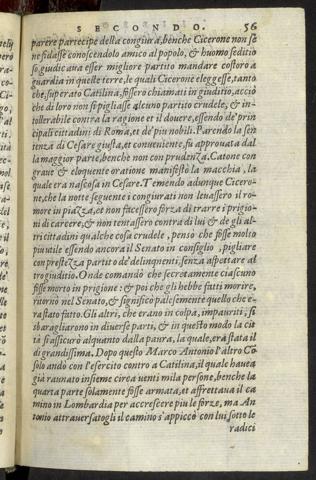 SECONDO. 56
parere partecipe della congiura, benche Cicerone non se
ne fidasse conoscendolo amico al popolo, & huomo seditio
so giudicaua esser migliore partito mandare costoro a
guardia in queste terre, le quali Cicerone eleggesse, tanto
che, superato Catilina, fussero chiamati in giuditio, acciò
che di loro non si pigliasse alcuno partito crudele, & in-
tollerabile contra la ragione et il douere, essendo de' prin
cipali cittadini di Roma, et de' piu nobili. Parendo la sen
tenza di Cesare giusta, et conueniente, fu approuata dal
la maggior parte, benche non con prudenza. Catone con
graue & eloquente oratione manifestò la macchia, la
quale era nascosa in Cesare. Temendo adunque Cicero-
ne, che la notte seguente i congiurati non leuassero il ro-
more in piazza, et non facessero forza di trarre i prigio-
ni di carcere, & non tentassero contra di lui & de gli al-
tri cittadini qualche cosa crudele, pensò che fosse molto
piu utile essendo ancora il Senato in consiglio, pigliare
con prestezza partito de' delinquenti senza aspettare al
tro giuditio. Onde comandò che secretamente ciascuno
fosse morto in prigione: & poi che gli hebbe fatti morire,
ritornò nel Senato, & significò palesemente quello che e-
ra stato fatto. Gli altri, che erano in colpa, impauriti, si
sbaragliarono in diuerse parti, & in questo modo la cit
tà si assicurò alquanto dalla paura, la quale, era stata il
dì grandissima. Dopo questo Marco Antonio l'altro Co
solo andò con l'esercito contro a Catilina, il quale hauea
già raunato insieme circa uenti mila persone, benche la
quarta parte solamente fosse armata, et affrettaua il ca
mino in Lombardia per accrescere piu le forze, ma An
tonio attrauersatogli il camino s'appiccò con lui sotto le
radici